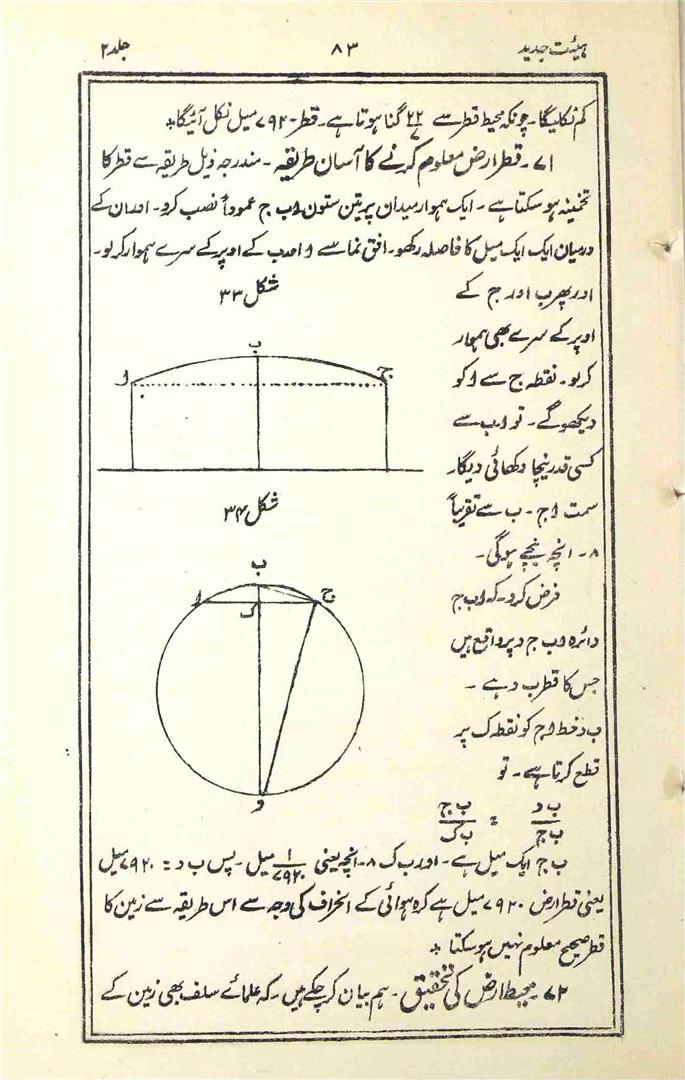 ہیئت جدید ۸۳ جلد ۲
کم نکلیگا۔ چونکہ محیط قطر سے ۲۲/۷ گنا ہوتا ہے۔ قطر ۷۹۲۰ میل نکل آئیگا *
۷۱۔ قطر ارض معلوم کرنے کا آسان طریقہ۔ مندرجہ ذیل طریقہ سے قطر کا
تخمینہ ہو سکتا ہے۔ ایک ہموار میدان پر تین ستون ا ب ج عموداً نصب کرو۔ اور ان کے
درمیان ایک ایک میل کا فاصلہ رکھو۔ افق نما سے ا اور ب کے اوپر کے سرے ہموار کرلو۔
اور پھر ب اور ج کے
شکل ۳۳
اوپر کے سرے بھی ہموار
کرلو۔ نقطہ ج سے ا کو
دیکھو گے۔ تو ا ب سے
کسی قدر نیچا دکھائی دیگا۔
سمت ا ج۔ ب سے تقریباً
۸۔ انچہ نیچے ہوگی۔
ا ب ج
شکل ۳۴
فرض کرو۔ کہ ا ب ج
دائرہ ا ب ج د پر واقع ہیں
جس کا قطر ب د ہے۔
ب د خط ا ج کو نقطہ ک پر
قطع کرتا ہے۔ تو
ا ب ج ک د
ب د / ب ج = ب ج / ب ک
ب ج ایک میل ہے۔ اور ب ک ۸۔ انچہ یعنی ۱/۷۹۲۰ میل۔ پس ب د = ۷۹۲۰ میل
یعنی قطر ارض ۷۹۲۰ میل ہے کرہ ہوائی کے انحراف کی وجہ سے اس طریقہ سے زمین کا
قطر صحیح معلوم نہیں ہو سکتا *
۷۲۔ محیط ارض کی تحقیق۔ ہم بیان کر چکے ہیں۔ کہ علمائے سلف بھی زمین کے